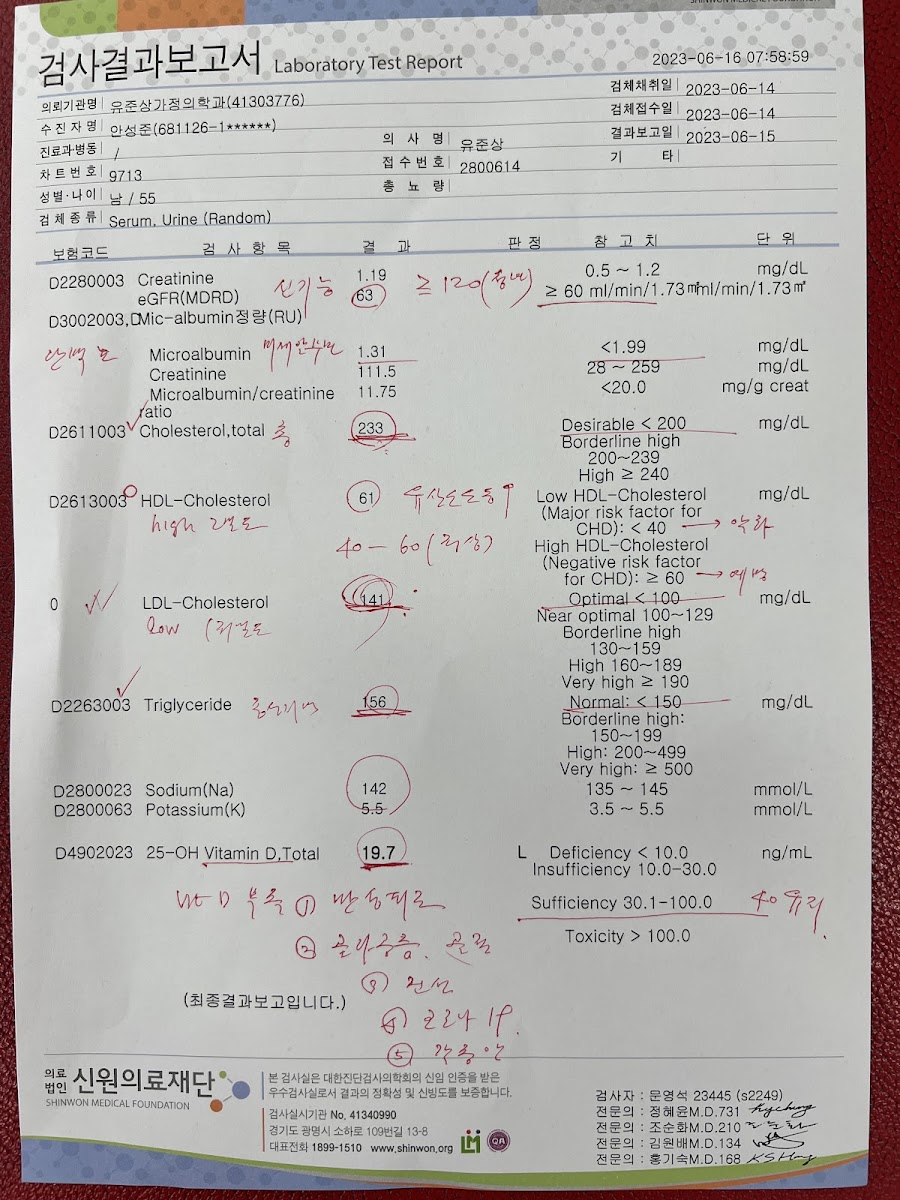 SHINWON MEDICAL FOUNDATION
검사결과보고서 Laboratory Test Report 2023-06-16 07:58:59
의뢰기관명 유준상가정의학과(41303776) 검체채취일 2023-06-14
수진자명 안성준(681126-1******) 의 사 명 유준상 검체접수일 2023-06-14
진료과·병동 / 접수번호 2800614 결과보고일 2023-06-15
차트번호 9713 총 뇨 량 기 타
성별·나이 남 / 55
검체종류 Serum, Urine (Random)
보험코드 검 사 항 목 결 과 판 정 참 고 치 단 위
D2280003 Creatinine 1.19 0.5 ~ 1.2 mg/dL
eGFR(MDRD) 신기능 63 ≥ 120 (청년) ≥ 60 ml/min/1.73㎡ml/min/1.73㎡
D3002003,DMic-albumin정량(RU)
단백뇨 Microalbumin 1.31 <1.99 mg/dL
Creatinine 111.5 28 ~ 259 mg/dL
Microalbumin/creatinine 11.75 <20.0 mg/g creat
ratio
D2611003 Cholesterol,total 총 233 Desirable < 200 mg/dL
Borderline high
200~239
High ≥ 240
D2613003 HDL-Cholesterol 61 유산소운동↑ Low HDL-Cholesterol mg/dL
high 고밀도 (Major risk factor for
CHD): < 40 → 악화
40 - 60 (이상) High HDL-Cholesterol
(Negative risk factor
for CHD): ≥ 60 → 예방
0 LDL-Cholesterol 141 Optimal < 100 mg/dL
low (저밀도 Near optimal 100~129
Borderline high
130~159
High 160~189
Very high ≥ 190
D2263003 Triglyceride 156 Normal: < 150 mg/dL
Borderline high:
150~199
High: 200~499
Very high: ≥ 500
D2800023 Sodium(Na) 142 135 ~ 145 mmol/L
D2800063 Potassium(K) 5.5 3.5 ~ 5.5 mmol/L
D4902023 25-OH Vitamin D,Total 19.7 L Deficiency < 10.0 ng/mL
Insufficiency 10.0-30.0
Vit D 부족 ① 만성피로 Sufficiency 30.1-100.0 40 유지
② 골다공증, 골절 Toxicity > 100.0
③
(최종결과보고입니다.)
④ 코로나 19.
⑤ 각종암
의료법인 신원의료재단
SHINWON MEDICAL FOUNDATION
본 검사실은 대한진단검사의학회의 신임 인증을 받은
우수검사실로서 결과의 정확성 및 신빙도를 보증합니다.
검사실시기관 No. 41340990
경기도 광명시 소하로 109번길 13-8
대표전화 1899-1510 www.shinwon.org
QA
검사자 : 문영석 23445 (s2249)
전문의 : 정혜윤M.D.731
전문의 : 조순화M.D.210
전문의 : 김원배M.D.134
전문의 : 홍기숙M.D.168